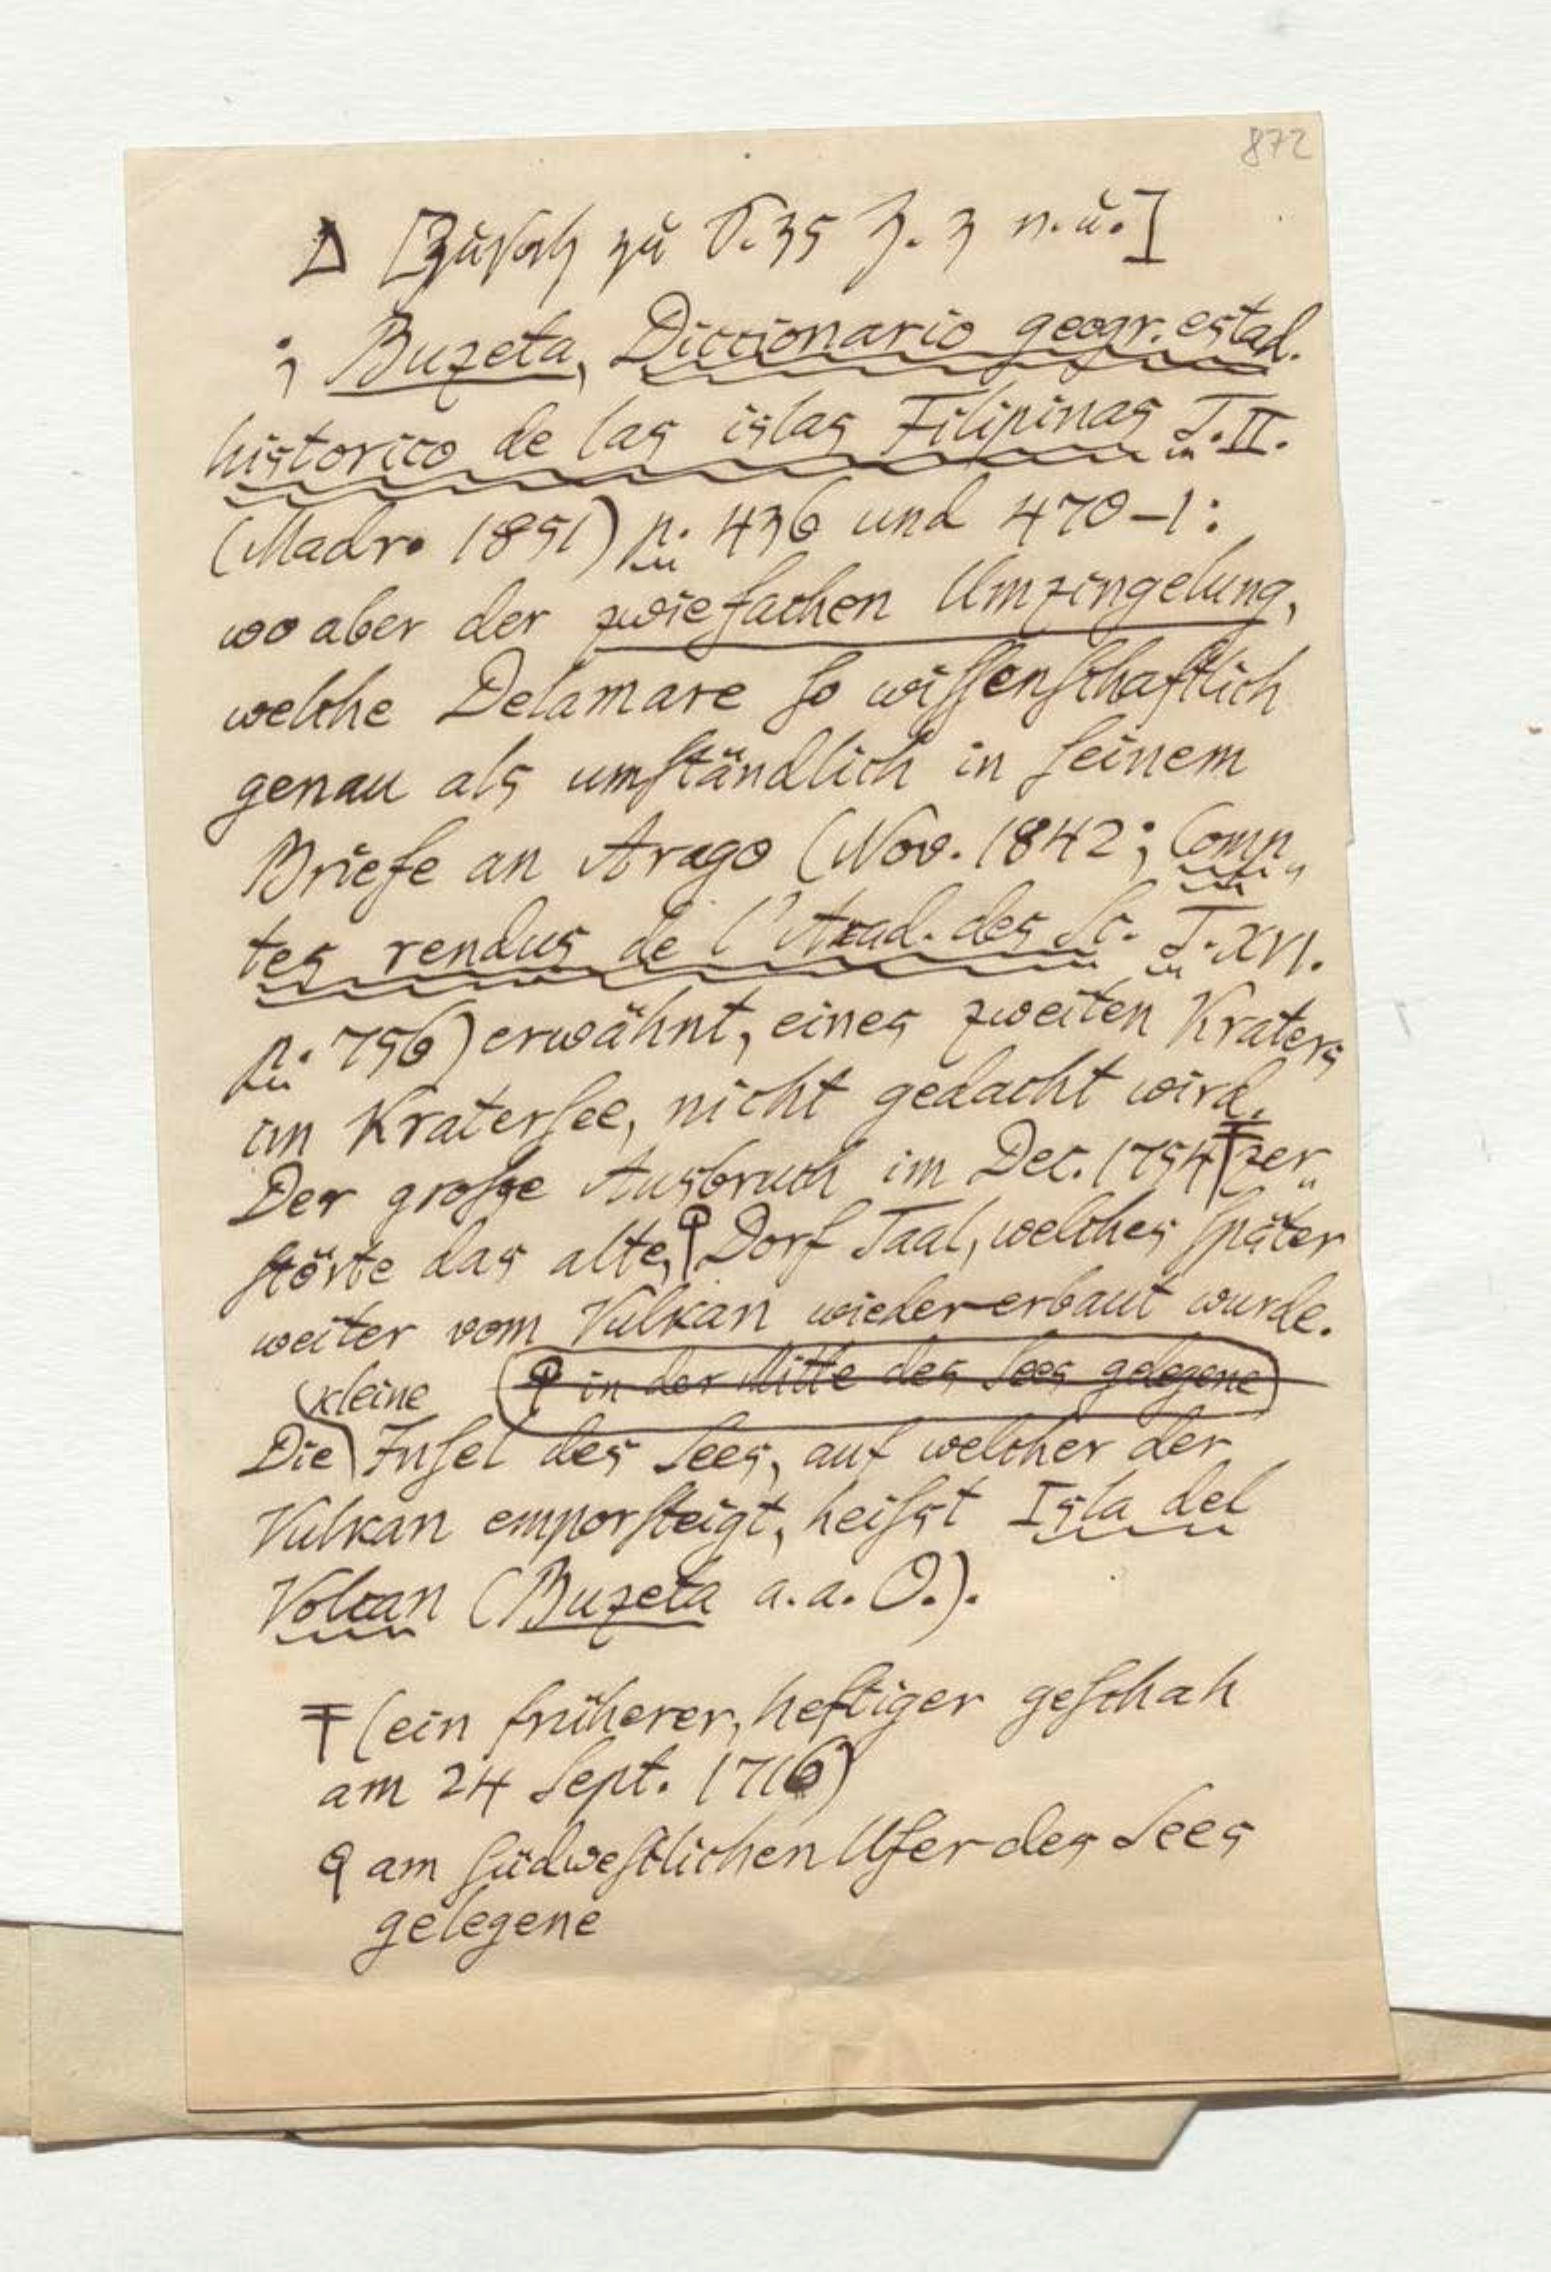 872
Δ [Zusatz zu S. 35 Z. 3 v. u.]
; Buzeta, Diccionario geogr. estad.
historico de las islas Filipinas T. II.
(Madr. 1851) p. 436 und 470–1:
wo aber der zwiefachen Umzingelung,
welche Delamare ſo wiſſenſchaftlich
genau als umſtändlich in ſeinem
Briefe an Arago (Nov. 1842; Comp„
tes rendus de l'Acad. des Sc. T. XVI.
p. 756) erwähnt, eines zweiten Kraters
im Kraterſee, nicht gedacht wird.
Der groſse Ausbruch im Dec. 1754 ╤ zer„
ſtörte das alte, ϙ Dorf Taal, welches ſpäter
weiter vom Vulkan wiedererbaut wurde.
kleine ϙ in der Mitte des Sees gelegene
Die Inſel des Sees, auf welcher der
Vulkan emporſteigt, heiſst Isla del
Volcan (Buzeta a. a. O.).
╤ (ein früherer, heftiger geſchah
am 24 Sept. 1716)
ϙ am ſüdweſtlichen Ufer des Sees
gelegene